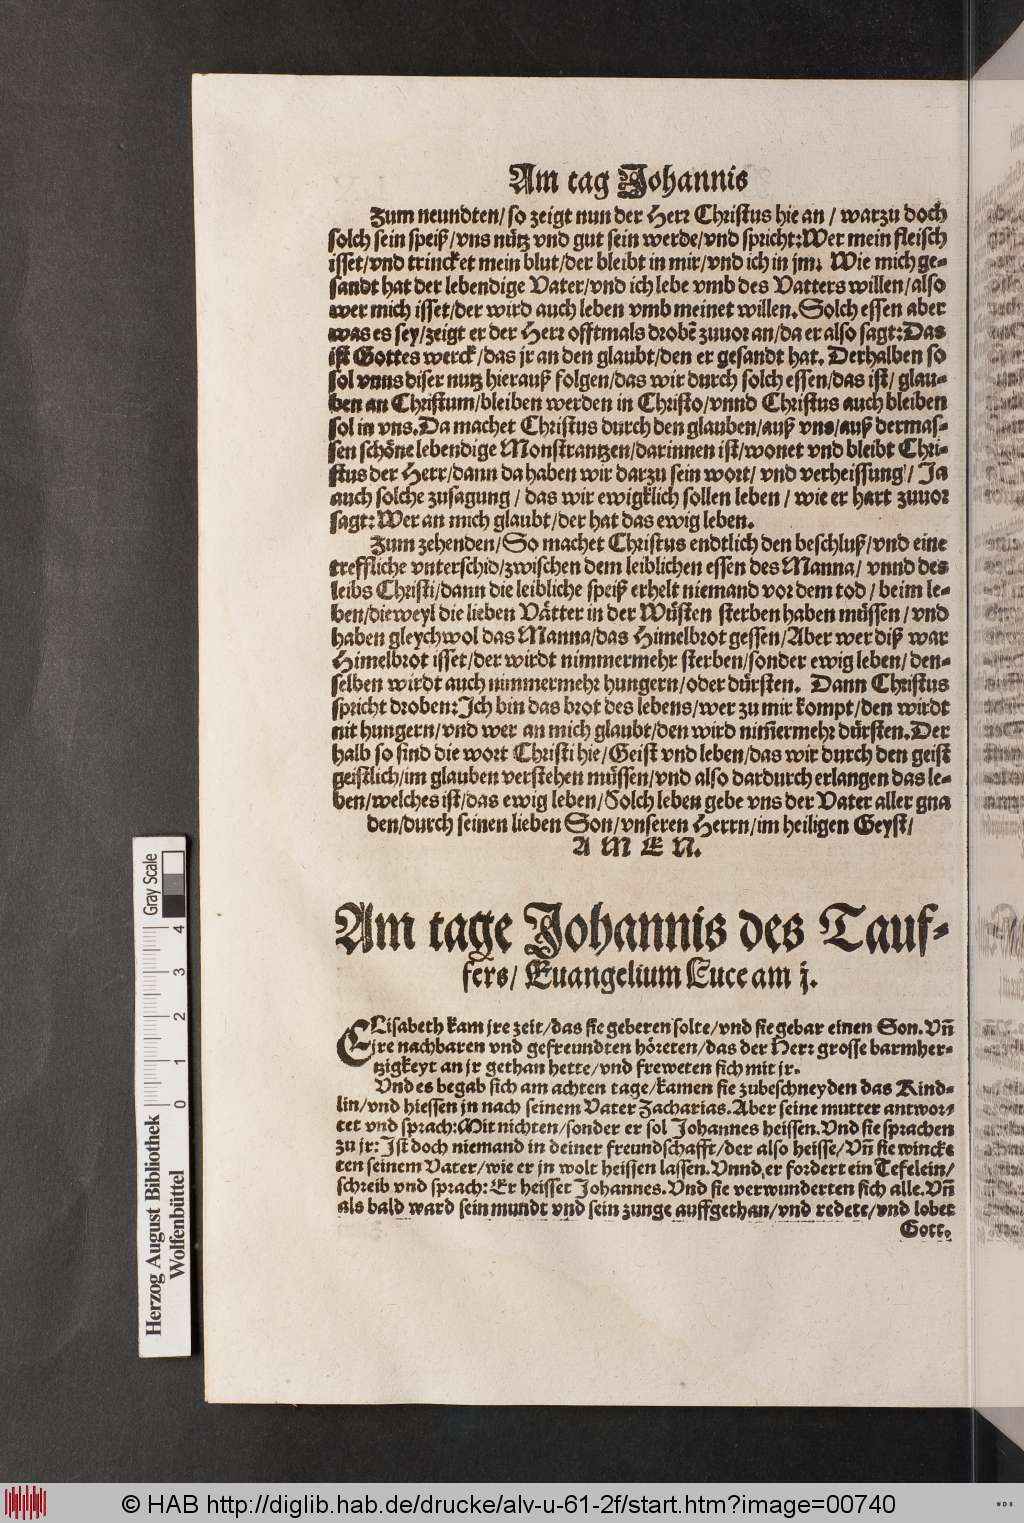 Am tag Johannis
Zum neundten/ so zeigt nun der Herr Christus hie an / warzu doch
solch sein speiß/vns nütz vnd gut sein werde/vnd spricht:Wer mein fleisch
isset/vnd trincket mein blut/der bleibt in mir/vnd ich in jm. Wie mich ge-
sandt hat der lebendige Vater/vnd ich lebe vmb des Vatters willen/also
wer mich isset/der wird auch leben vmb meinet willen. Solch essen aber
was es sey/zeigt er der Herr offtmals drobẽ zuuor an/da er also sagt:Das
ist Gottes werck/das jr an den glaubt/den er gesandt hat. Derhalben so
sol vnns diser nutz hierauß folgen/das wir durch solch essen/das ist/ glau-
ben an Christum/bleiben werden in Christo/vnnd Christus auch bleiben
sol in vns. Da machet Christus durch den glauben/auß vns/auß dermas-
sen schöne lebendige Monstrantzen/darinnen ist/wonet vnd bleibt Chri-
stus der Herr/dann da haben wir darzu sein wort/ vnd verheissung/ Ja
auch solche zusagung / das wir ewigklich sollen leben / wie er hart zuuor
sagt: Wer an mich glaubt/der hat das ewig leben.
Zum zehenden/So machet Christus endtlich den beschluß/vnd eine
treffliche vnterschid/zwischen dem leiblichen essen des Manna/ vnnd des
leibs Christi/dann die leibliche speiß erhelt niemand vor dem tod / beim le-
ben/dieweyl die lieben Vätter in der Wüsten sterben haben müssen / vnd
haben gleychwol das Manna/das Himelbrot gessen/Aber wer diß war
Himelbrot isset/der wirdt nimmermehr sterben/sonder ewig leben/ den-
selben wirdt auch nimmermehr hungern/oder dürsten. Dann Christus
spricht droben: Ich bin das brot des lebens/wer zu mir kompt/den wirdt
nit hungern/vnd wer an mich glaubt/den wird nim̃ermehr dürsten. Der
halb so sind die wort Christi hie/Geist vnd leben/das wir durch den geist
geistlich/im glauben verstehen müssen/vnd also dardurch erlangen das le-
ben/welches ist/das ewig leben/Solch leben gebe vns der Vater aller gna
den/durch seinen lieben Son/vnseren Herrn/im heiligen Geyst/
A M E N.
Am tage Johannis des Tauf-
fers/ Euangelium Luce am j.
ELisabeth kam jre zeit/das sie geberen solte/vnd sie gebar einen Son. Vñ
jre nachbaren vnd gefreundten höreten/das der Herr grosse barmher-
tzigkeyt an jr gethan hette/vnd freweten sich mit jr.
Vnd es begab sich am achten tage/kamen sie zubeschneyden das Kind-
lin/vnd hiessen jn nach seinem Vater Zacharias. Aber seine mutter antwor-
tet vnd sprach: Mit nichten/sonder er sol Johannes heissen. Vnd sie sprachen
zu jr: Ist doch niemand in deiner freundschafft/der also heisse/Vñ sie wincke
ten seinem Vater/wie er jn wolt heissen lassen. Vnnd er fordert ein Tefelein/
schreib vnd sprach: Er heisset Johannes. Vnd sie verwunderten sich alle. Vñ
als bald ward sein mundt vnd sein zunge auffgethan/vnd redete/vnd lobet
Gott.
Herzog August Bibliothek
Wolfenbüttel
0 1 2 3 4
Gray Scale
© HAB http://diglib.hab.de/drucke/alv-u-61-2f/start.htm?image=00740